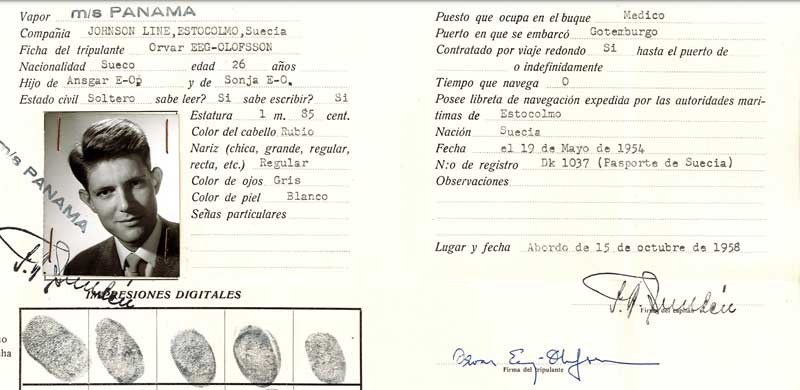 Vapor m/s PANAMA
Compañía JOHNSON LINE,ESTOCOLMO,Suecia
Ficha del tripulante Orvar EEG-OLOFSSON
Nacionalidad Sueco edad 26 años
Hijo de Ansgar E-O, y de Sonja E-O.
Estado civil Soltero sabe leer? Si sabe escribir? Si
Estatura 1 m. 85 cent.
Color del cabello Rubio
Nariz (chica, grande, regular,
recta, etc.) Regular
Color de ojos Gris
Color de piel Blanco
Señas particulares
m/s PANAMA
IMPRESIONES DIGITALES
Puesto que ocupa en el buque Medico
Puerto en que se embarcó Gotemburgo
Contratado por viaje redondo Si hasta el puerto de
o indefinidamente
Tiempo que navega 0
Posee libreta de navegación expedida por las autoridades marí-
timas de Estocolmo
Nación Suecia
Fecha el 19 de Mayo de 1954
N:o de registro Dk 1037 (Pasporte de Suecia)
Observaciones
Lugar y fecha Abordo de 15 de octubre de 1958
Firma del capitán
Orvar Eeg-Olofsson
Firma del tripulante